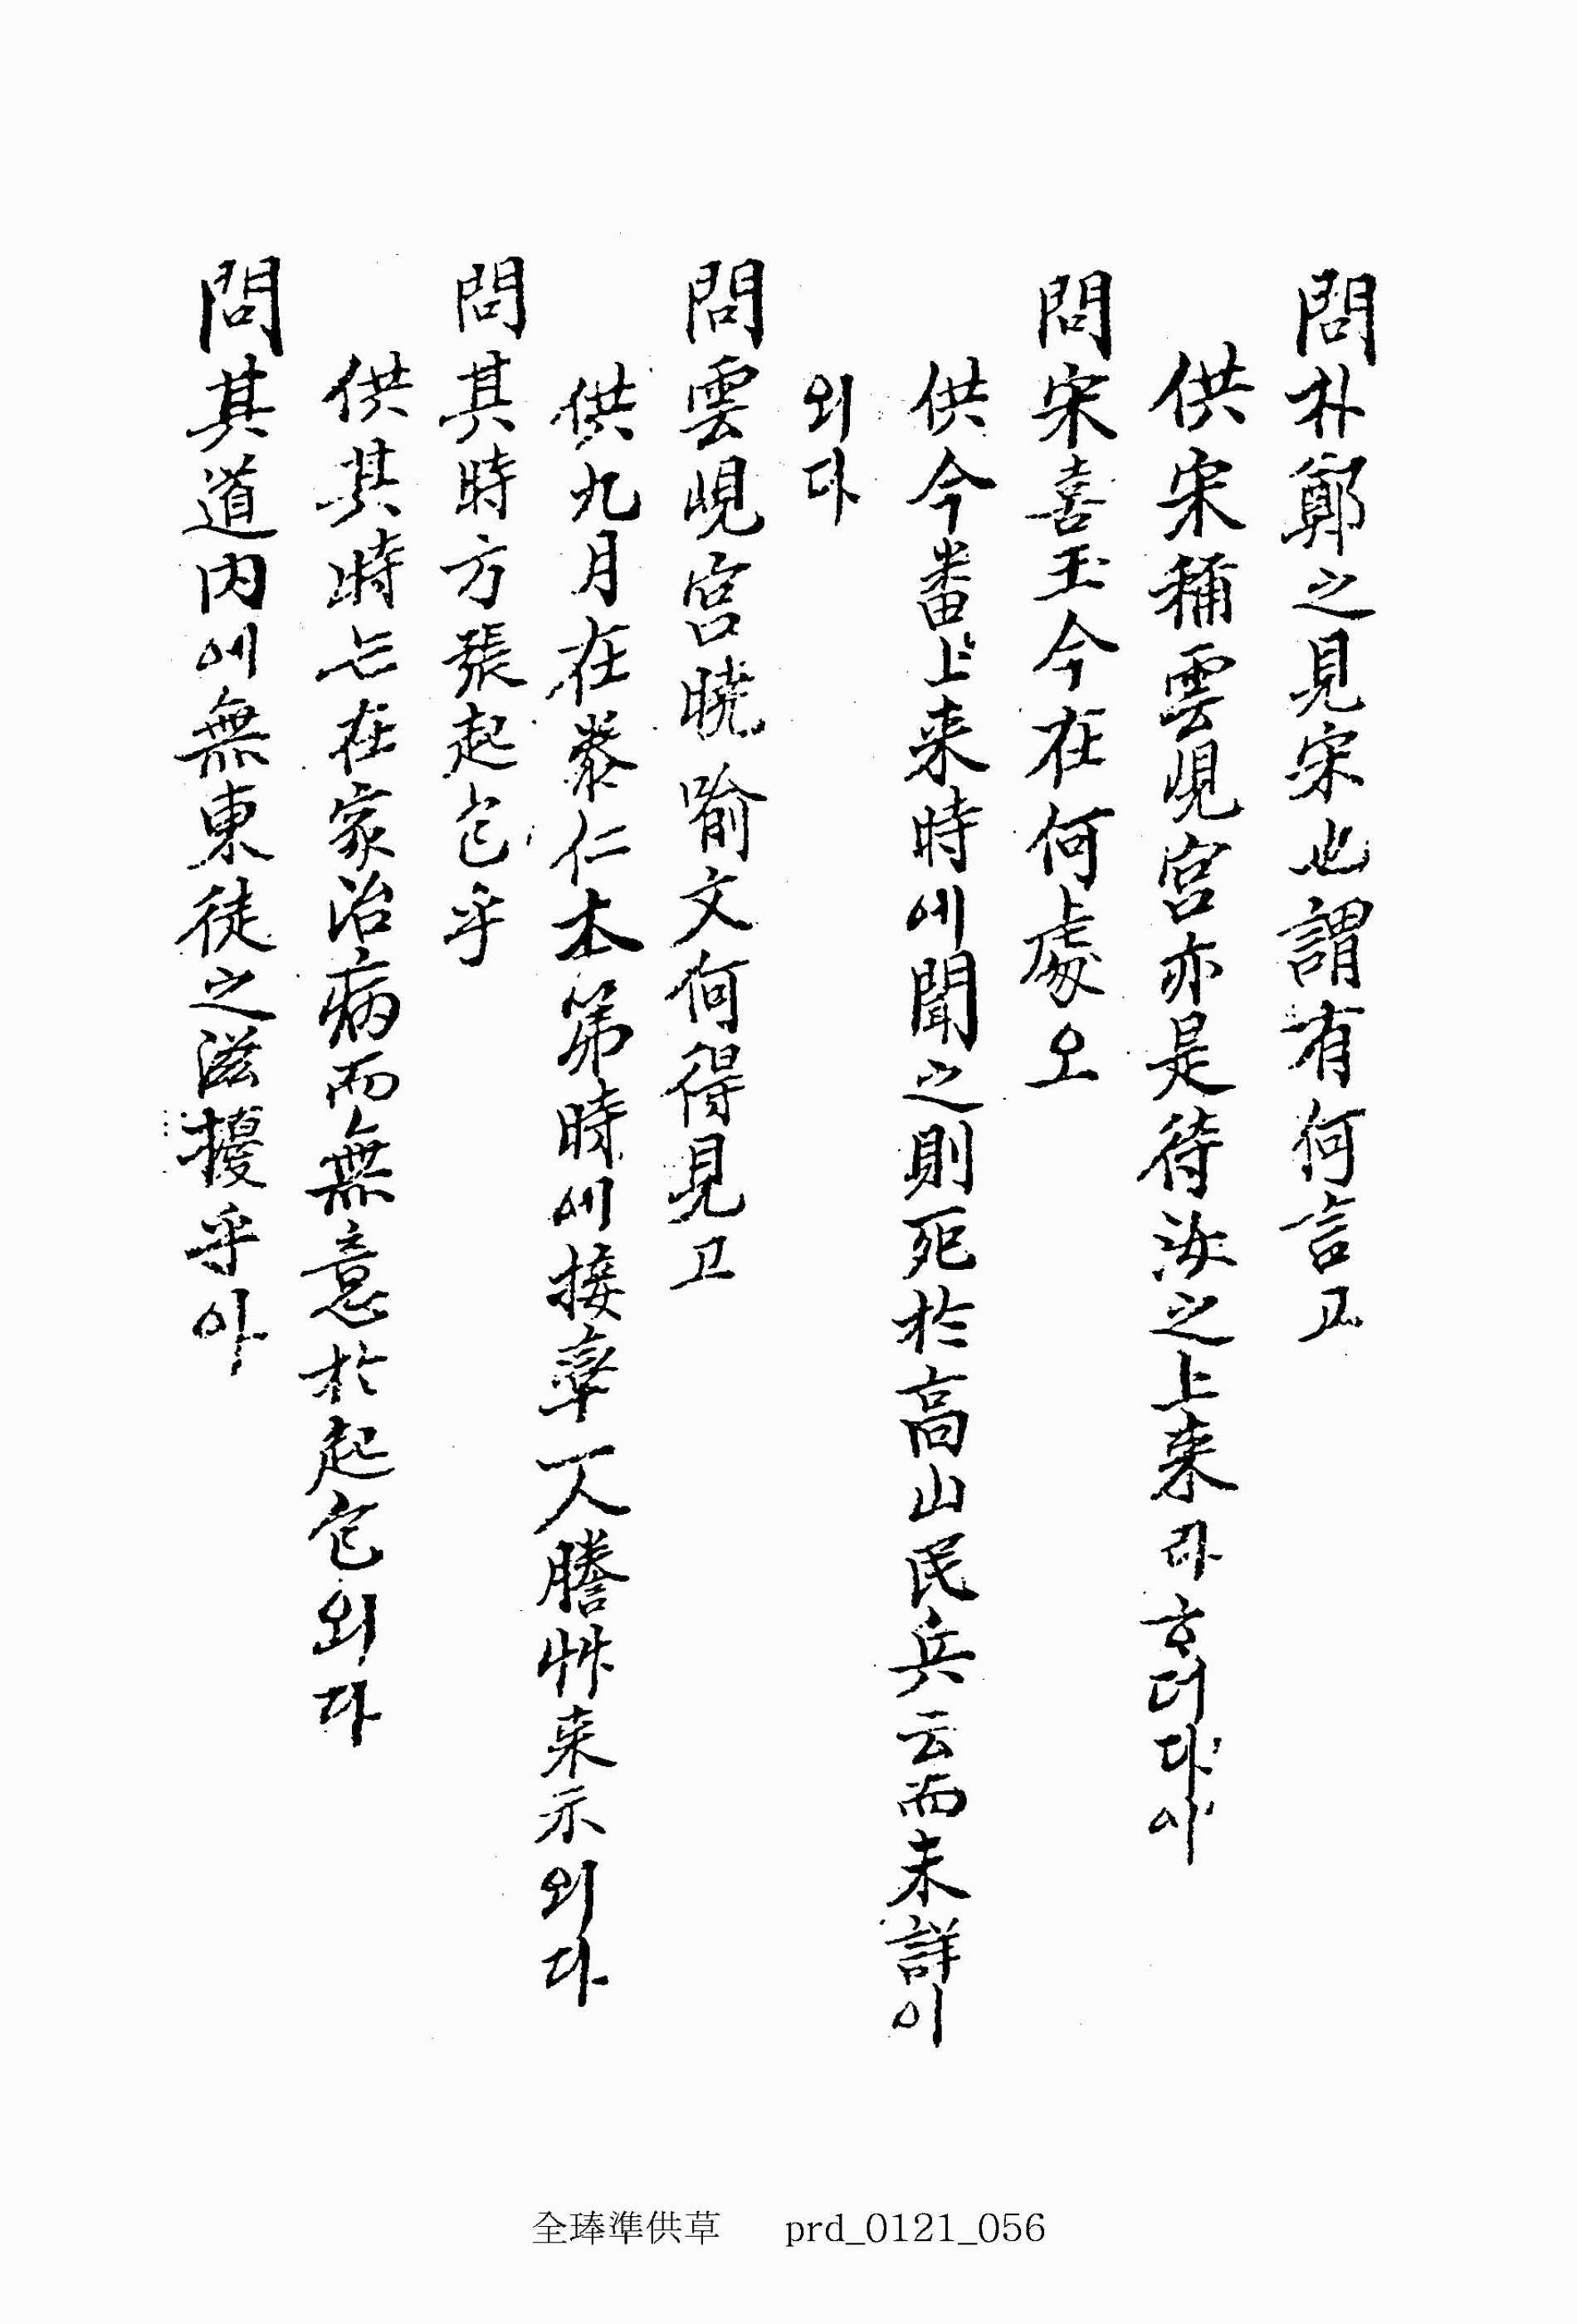 問朴鄭之見宋也謂有何言고
供宋稱雲峴宮亦是待汝之上來라ᄒᆞ더다이
問宋喜玉今在何處오
供今番上来時에聞之則死於高山民兵云而未詳이
외다
問雲峴宮曉喩文何得見고
供九月在泰仁本第時에接率一人謄艸来示외다
問其時方張起包乎
供其時는在家治病而無意於起包외다
問其道內에無東徒之滋擾乎아
全琫準供草 prd_0121_056